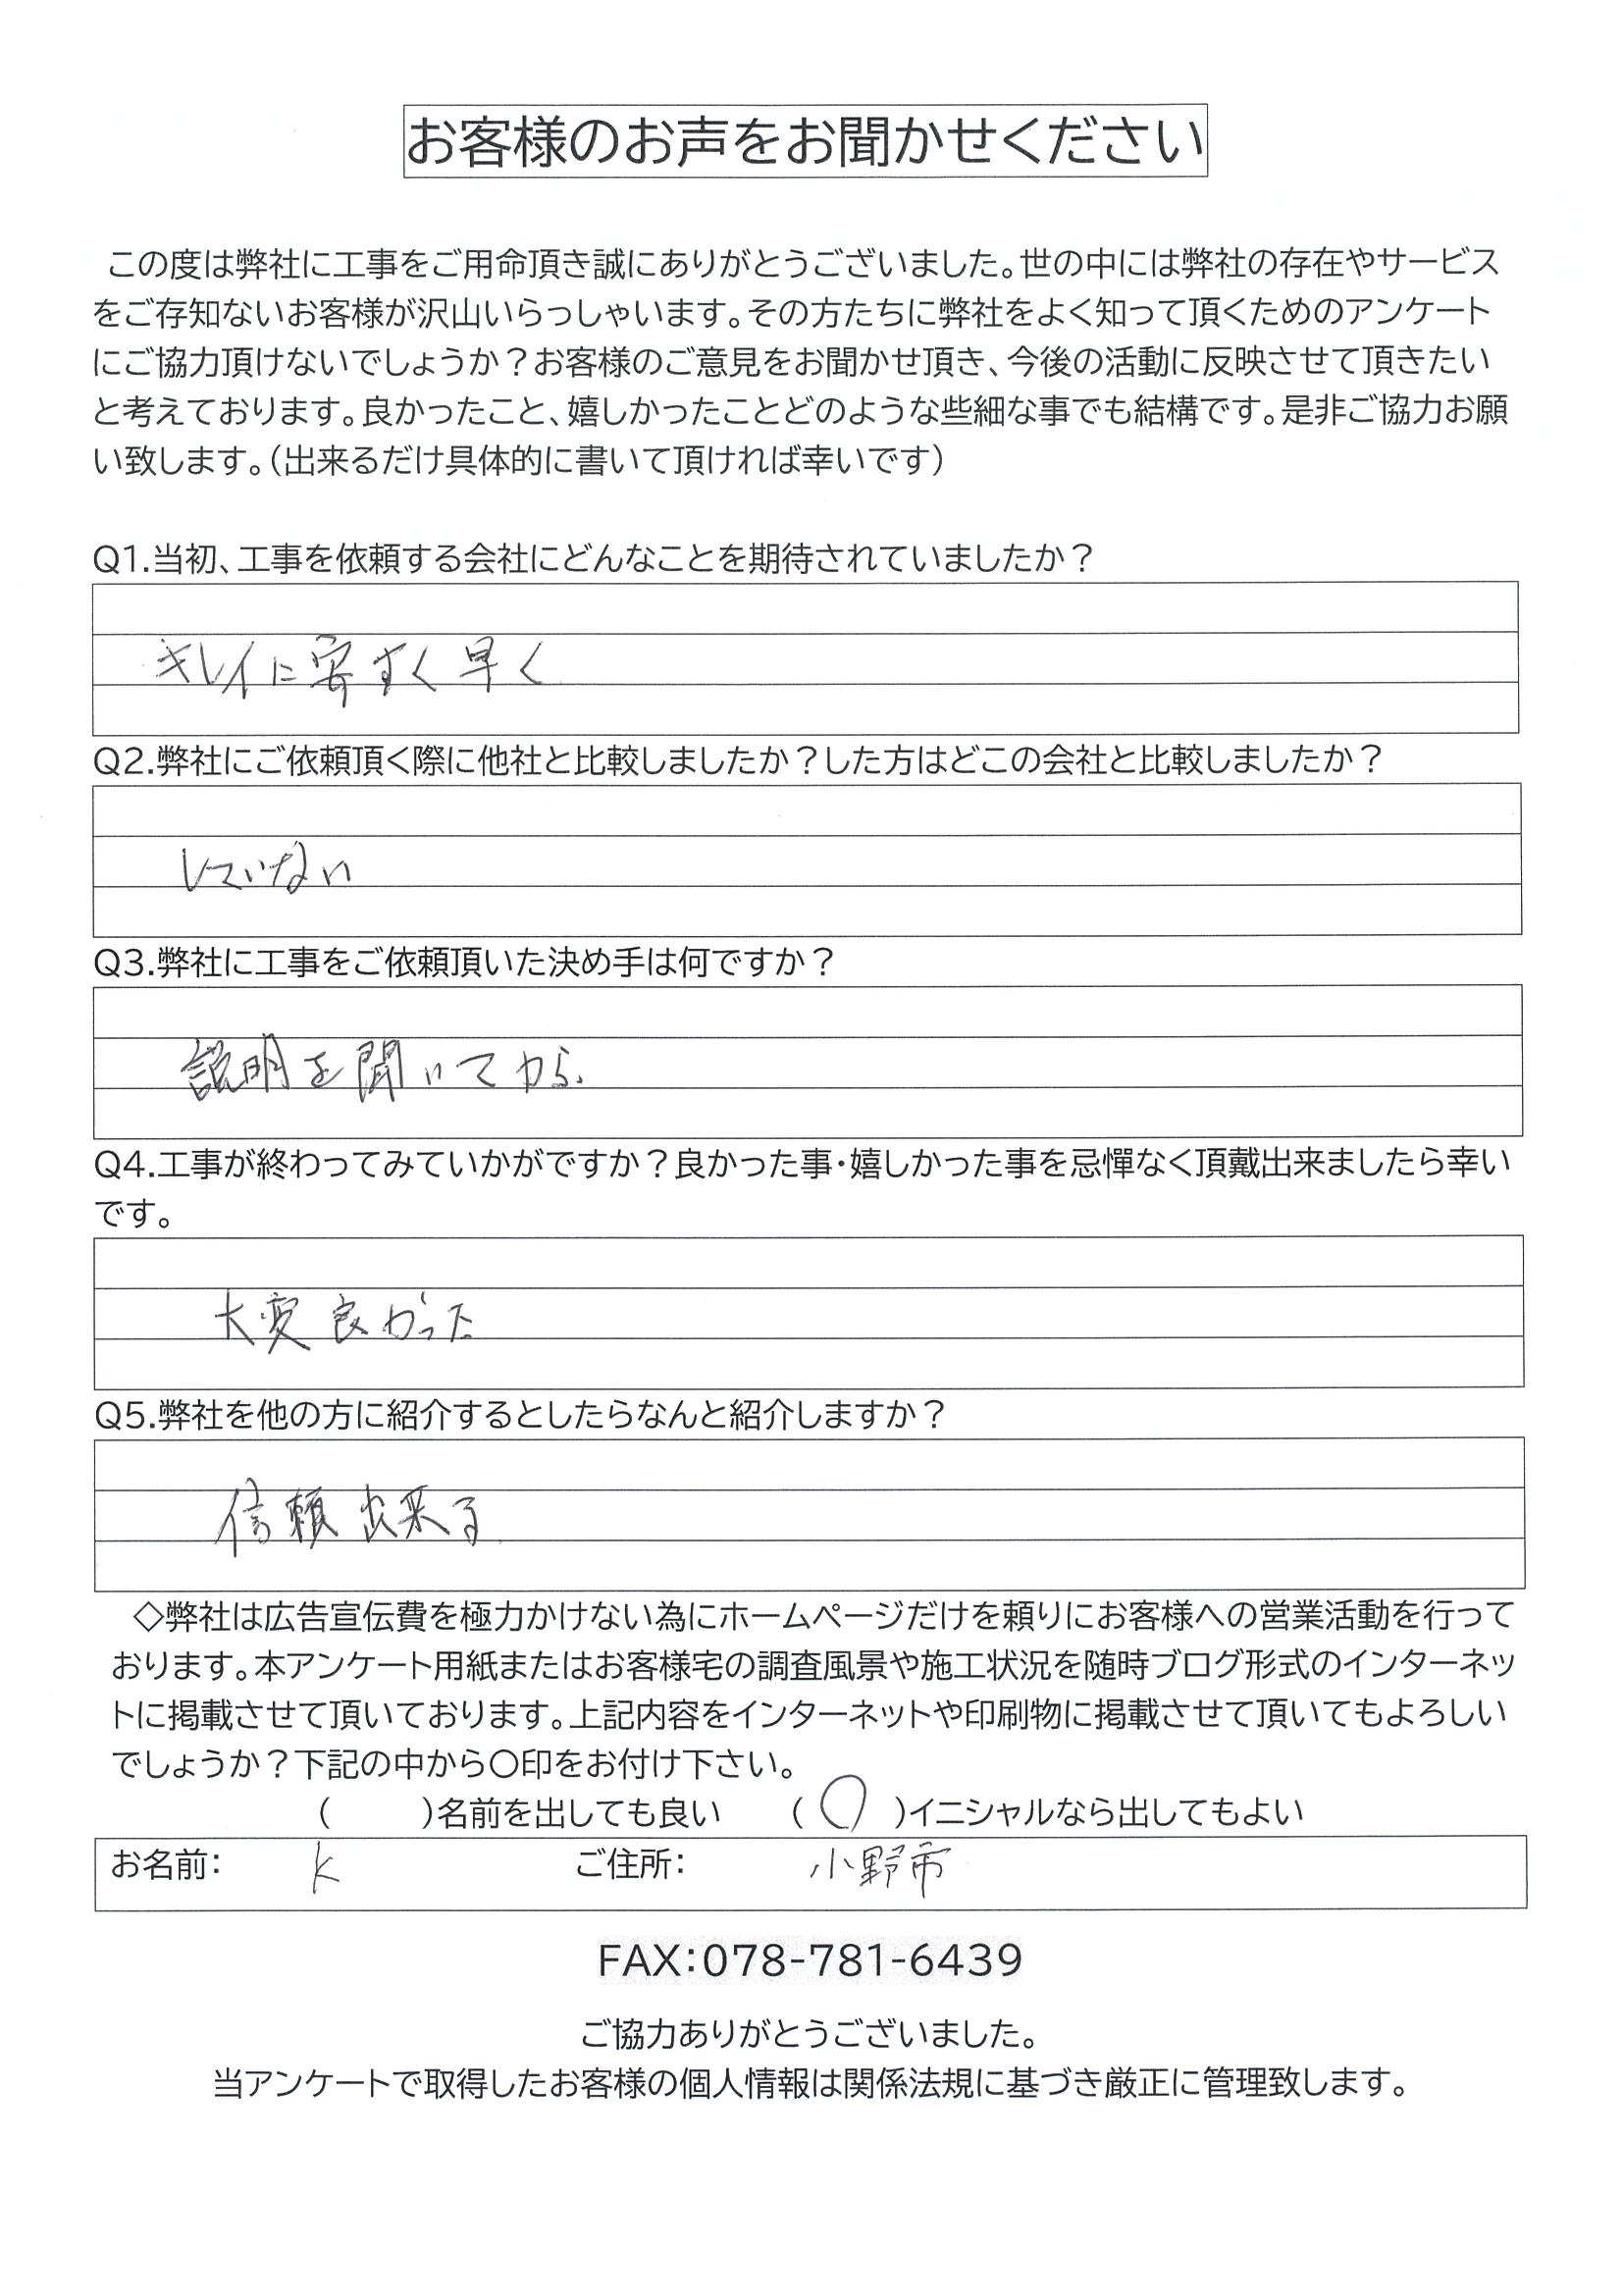 お客様のお声をお聞かせください
この度は弊社に工事をご用命頂き誠にありがとうございました。世の中には弊社の存在やサービス
をご存知ないお客様が沢山いらっしゃいます。その方たちに弊社をよく知って頂くためのアンケート
にご協力頂けないでしょうか？お客様のご意見をお聞かせ頂き、今後の活動に反映させて頂きたい
と考えております。良かったこと、嬉しかったことどのような些細な事でも結構です。是非ご協力お願
い致します。（出来るだけ具体的に書いて頂ければ幸いです）
Q1.当初、工事を依頼する会社にどんなことを期待されていましたか？
キレイに 早く
Q2.弊社にご依頼頂く際に他社と比較しましたか？した方はどこの会社と比較しましたか？
していない
Q3.弊社に工事をご依頼頂いた決め手は何ですか？
説明を聞いてから.
Q4.工事が終わってみていかがですか？良かった事・嬉しかった事を忌憚なく頂戴出来ましたら幸い
です。
大変良かった
Q5.弊社を他の方に紹介するとしたらなんと紹介しますか？
信頼出来る
◇弊社は広告宣伝費を極力かけない為にホームページだけを頼りにお客様への営業活動を行って
おります。本アンケート用紙またはお客様宅の調査風景や施工状況を随時ブログ形式のインターネッ
トに掲載させて頂いております。上記内容をインターネットや印刷物に掲載させて頂いてもよろしい
でしょうか？下記の中から〇印をお付け下さい。
（　　）名前を出しても良い　（〇）イニシャルなら出してもよい
お名前：　K　ご住所：　小野市
FAX：078-781-6439
ご協力ありがとうございました。
当アンケートで取得したお客様の個人情報は関係法規に基づき厳正に管理致します。